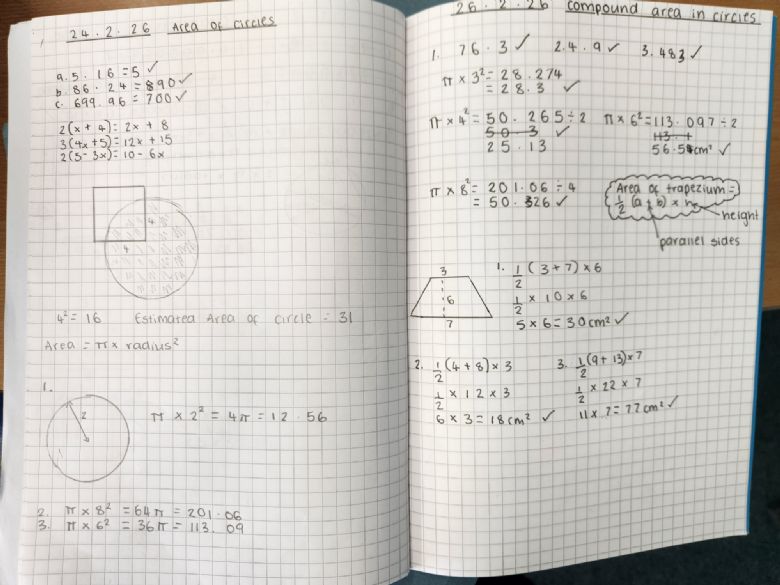 24.2.26 Area of circles
a. 5.16 = 5 ✓
b. 86.24 = 890 ✓
c. 699.96 = 700 ✓
2(x + 4) = 2x + 8
3(4x + 5) = 12x + 15
2(5 - 3x) = 10 - 6x
4
4
4² = 16 Estimated Area of circle = 31
Area = π x radius²
1.
2
π x 2² = 4π = 12.56
2. π x 8² = 64π = 201.06
3. π x 6² = 36π = 113.09
26.2.26 Compound area in circles
1. 76.3 ✓ 2. 4.9 ✓ 3. 483 ✓
π x 3² = 28.274
= 28.3 ✓
π x 4² = 50.265 ÷ 2
50.3 ✓
25.13
π x 6² = 113.097 ÷ 2
113.1
56.5 cm² ✓
π x 8² = 201.06 ÷ 4
= 50.326 ✓
Area of trapezium =
1/2 (a + b) x h
height
parallel sides
3
6
7
1. 1/2 (3 + 7) x 6
1/2 x 10 x 6
5 x 6 = 30cm² ✓
2. 1/2 (4 + 8) x 3
1/2 x 12 x 3
6 x 3 = 18cm² ✓
3. 1/2 (9 + 13) x 7
1/2 x 22 x 7
11 x 7 = 77cm² ✓